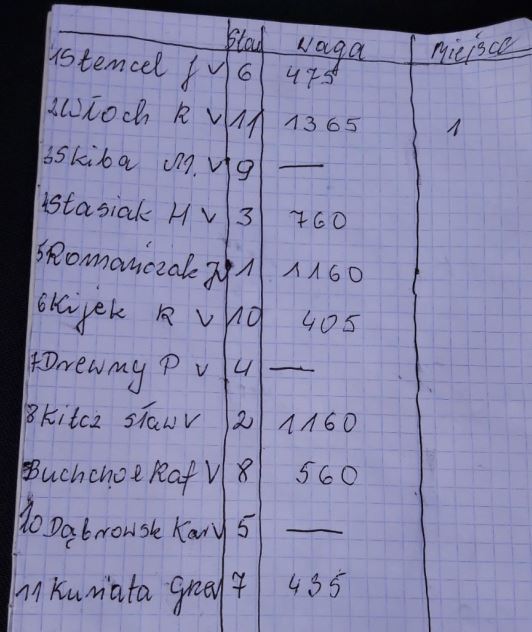 Stan Waga Miejsce
1 Stencel J V 6 475
2 Włoch R V 11 1365 1
3 Skiba M. V 9 —
4 Stasiak H V 3 760
5 Romańczak J V 1 1160
6 Kijek R V 10 405
7 Drewny P V 4 —
8 Kitcz Sław V 2 1160
9 Buchchoł Raf V 8 560
10 Dąbrowsk Kar V 5 —
11 Kuniata Grze V 7 435